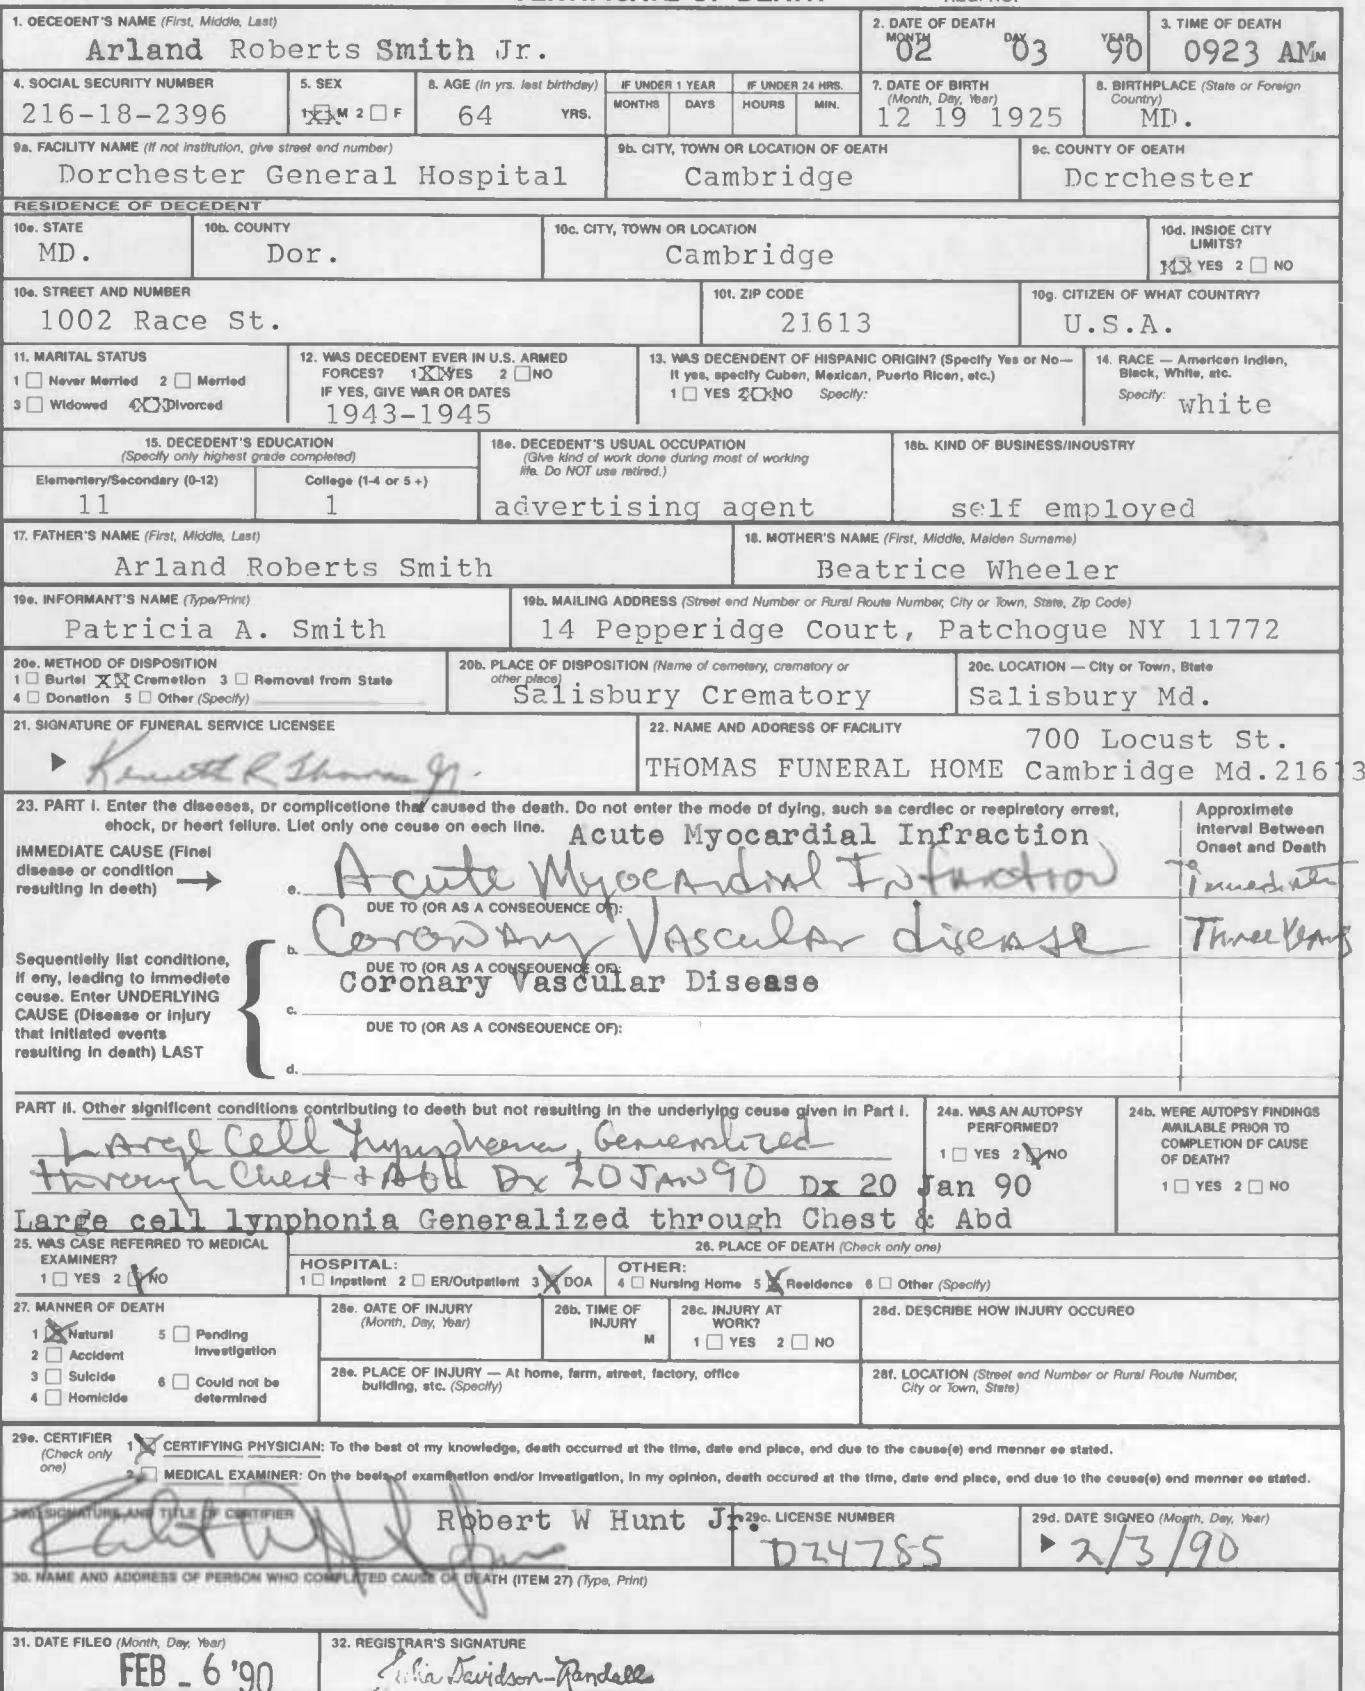 1. DECEDENT'S NAME (First, Middle, Last)
Arland Roberts Smith Jr.
2. DATE OF DEATH
MONTH DAY YEAR
02 03 90
3. TIME OF DEATH
0923 AM M
4. SOCIAL SECURITY NUMBER
216-18-2396
5. SEX
1 XX M 2 ☐ F
6. AGE (In yrs. last birthday)
64 YRS.
IF UNDER 1 YEAR
MONTHS DAYS
IF UNDER 24 HRS.
HOURS MIN.
7. DATE OF BIRTH
(Month, Day, Year)
12 19 1925
8. BIRTHPLACE (State or Foreign
Country)
MD.
9a. FACILITY NAME (If not institution, give street and number)
Dorchester General Hospital
9b. CITY, TOWN OR LOCATION OF DEATH
Cambridge
9c. COUNTY OF DEATH
Dorchester
RESIDENCE OF DECEDENT
10a. STATE
MD.
10b. COUNTY
Dor.
10c. CITY, TOWN OR LOCATION
Cambridge
10d. INSIDE CITY
LIMITS?
1 XX YES 2 ☐ NO
10e. STREET AND NUMBER
1002 Race St.
10f. ZIP CODE
21613
10g. CITIZEN OF WHAT COUNTRY?
U.S.A.
11. MARITAL STATUS
1 ☐ Never Married 2 ☐ Married
3 ☐ Widowed 4 XX Divorced
12. WAS DECEDENT EVER IN U.S. ARMED
FORCES? 1 XX YES 2 ☐ NO
IF YES, GIVE WAR OR DATES
1943-1945
13. WAS DECENDENT OF HISPANIC ORIGIN? (Specify Yes or No—
If yes, specify Cuban, Mexican, Puerto Rican, etc.)
1 ☐ YES 2 XX NO Specify:
14. RACE — American Indian,
Black, White, etc.
Specify: white
15. DECEDENT'S EDUCATION
(Specify only highest grade completed)
Elementary/Secondary (0-12)
11
College (1-4 or 5+)
1
16a. DECEDENT'S USUAL OCCUPATION
(Give kind of work done during most of working
life. Do NOT use retired.)
advertising agent
16b. KIND OF BUSINESS/INDUSTRY
self employed
17. FATHER'S NAME (First, Middle, Last)
Arland Roberts Smith
18. MOTHER'S NAME (First, Middle, Maiden Surname)
Beatrice Wheeler
19a. INFORMANT'S NAME (Type/Print)
Patricia A. Smith
19b. MAILING ADDRESS (Street and Number or Rural Route Number, City or Town, State, Zip Code)
14 Pepperidge Court, Patchogue NY 11772
20a. METHOD OF DISPOSITION
1 ☐ Burial XX Cremation 3 ☐ Removal from State
4 ☐ Donation 5 ☐ Other (Specify)
20b. PLACE OF DISPOSITION (Name of cemetery, crematory or
other place)
Salisbury Crematory
20c. LOCATION — City or Town, State
Salisbury Md.
21. SIGNATURE OF FUNERAL SERVICE LICENSEE
Kenneth R Thomas Jr.
22. NAME AND ADDRESS OF FACILITY
700 Locust St.
THOMAS FUNERAL HOME Cambridge Md.21613
23. PART I. Enter the diseases, or complications that caused the death. Do not enter the mode of dying, such as cardiac or respiratory arrest,
shock, or heart failure. List only one cause on each line.
Approximate
Interval Between
Onset and Death
Acute Myocardial Infraction
IMMEDIATE CAUSE (Final
disease or condition
resulting in death)
a. Acute Myocardial Infarction Immediate
DUE TO (OR AS A CONSEQUENCE OF):
b. Coronary Vascular disease Three Years
DUE TO (OR AS A CONSEQUENCE OF):
Coronary Vascular Disease
Sequentially list conditions,
if any, leading to immediate
cause. Enter UNDERLYING
CAUSE (Disease or injury
that initiated events
resulting in death) LAST
c.
DUE TO (OR AS A CONSEQUENCE OF):
d.
PART II. Other significant conditions contributing to death but not resulting in the underlying cause given in Part I.
Large Cell Lymphoma, Generalized
through Chest & Abd Dx 20 JAN 90 Dx 20 Jan 90
Large cell lynphonia Generalized through Chest & Abd
24a. WAS AN AUTOPSY
PERFORMED?
1 ☐ YES 2 X NO
24b. WERE AUTOPSY FINDINGS
AVAILABLE PRIOR TO
COMPLETION OF CAUSE
OF DEATH?
1 ☐ YES 2 ☐ NO
25. WAS CASE REFERRED TO MEDICAL
EXAMINER?
1 ☐ YES 2 X NO
26. PLACE OF DEATH (Check only one)
HOSPITAL:
1 ☐ Inpatient 2 ☐ ER/Outpatient 3 X DOA
OTHER:
4 ☐ Nursing Home 5 X Residence 6 ☐ Other (Specify)
27. MANNER OF DEATH
1 X Natural 5 ☐ Pending
Investigation
2 ☐ Accident
3 ☐ Suicide 6 ☐ Could not be
determined
4 ☐ Homicide
28a. DATE OF INJURY
(Month, Day, Year)
28b. TIME OF
INJURY
M
28c. INJURY AT
WORK?
1 ☐ YES 2 ☐ NO
28d. DESCRIBE HOW INJURY OCCURED
28e. PLACE OF INJURY — At home, farm, street, factory, office
building, etc. (Specify)
28f. LOCATION (Street and Number or Rural Route Number,
City or Town, State)
29a. CERTIFIER
(Check only
one)
1 X CERTIFYING PHYSICIAN: To the best of my knowledge, death occurred at the time, date and place, and due to the cause(s) and manner as stated.
2 ☐ MEDICAL EXAMINER: On the basis of examination and/or investigation, in my opinion, death occured at the time, date and place, and due to the cause(s) and manner as stated.
29b. SIGNATURE AND TITLE OF CERTIFIER
Robert W Hunt Jr.
29c. LICENSE NUMBER
D24785
29d. DATE SIGNED (Month, Day, Year)
2/3/90
30. NAME AND ADDRESS OF PERSON WHO COMPLETED CAUSE OF DEATH (ITEM 27) (Type, Print)
31. DATE FILED (Month, Day, Year)
FEB - 6 '90
32. REGISTRAR'S SIGNATURE
Julia Davidson-Randall